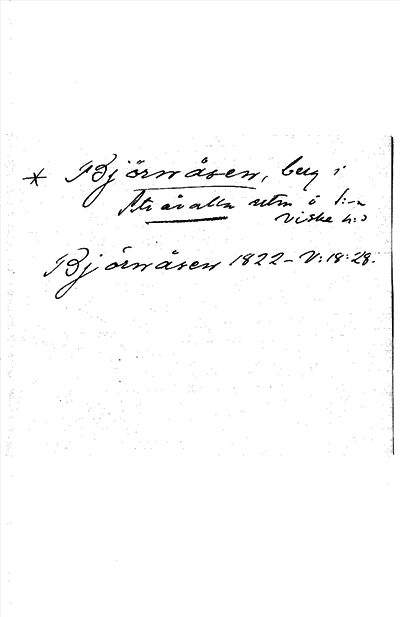 * Björnåsen, berg i
Stråvalla utm ö s:n
Viske h:d
Björnåsen 1822 – V:18:28.